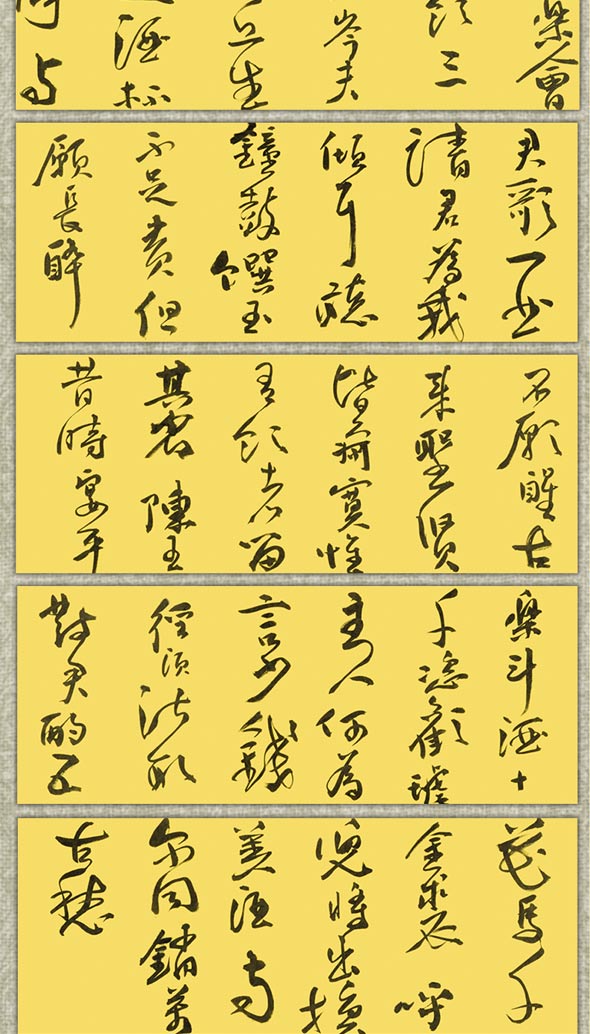 樂會
飲三
岑夫
丘生
酒杯
與
君歌一曲
請君為我
傾耳聽
鐘鼓饌玉
不足貴但
願長醉
不願醒古
來聖賢
皆寂寞惟
有飲者留
其名陳王
昔時宴平
樂斗酒十
千恣歡謔
主人何為
言少錢
徑須沽取
對君酌五
花馬千
金裘呼
兒將出換
美酒與
尔同銷萬
古愁